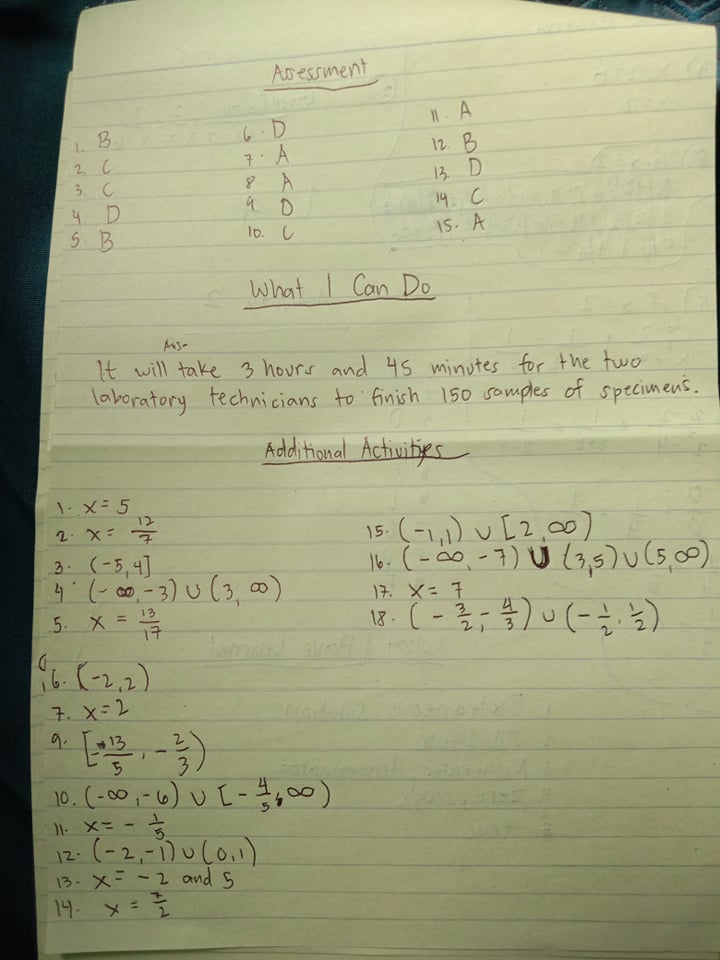 Assessment
1. B
2. C
3. C
4 D
5. B
6. D
7. A
8 A
9. D
10. C
11. A
12. B
13. D
14. C
15. A
What I Can Do
Ans-
It will take 3 hours and 45 minutes for the two
laboratory technicians to finish 150 samples of specimens.
Additional Activities
1. x = 5
2. x = 12/7
3. (-5, 4]
4. (-∞, -3) ∪ (3, ∞)
5. x = 13/17
6. (-2, 2)
7. x = 2
9. [-13/5, -2/3)
10. (-∞, -6) ∪ [-4/5, ∞)
11. x = -1/5
12. (-2, -1) ∪ (0, 1)
13. x = -2 and 5
14. x = 7/2
15. (-1, 1) ∪ [2, ∞)
16. (-∞, -7) ∪ (3, 5) ∪ (5, ∞)
17. x = 7
18. (-3/2, -4/3) ∪ (-1/2, 1/2)